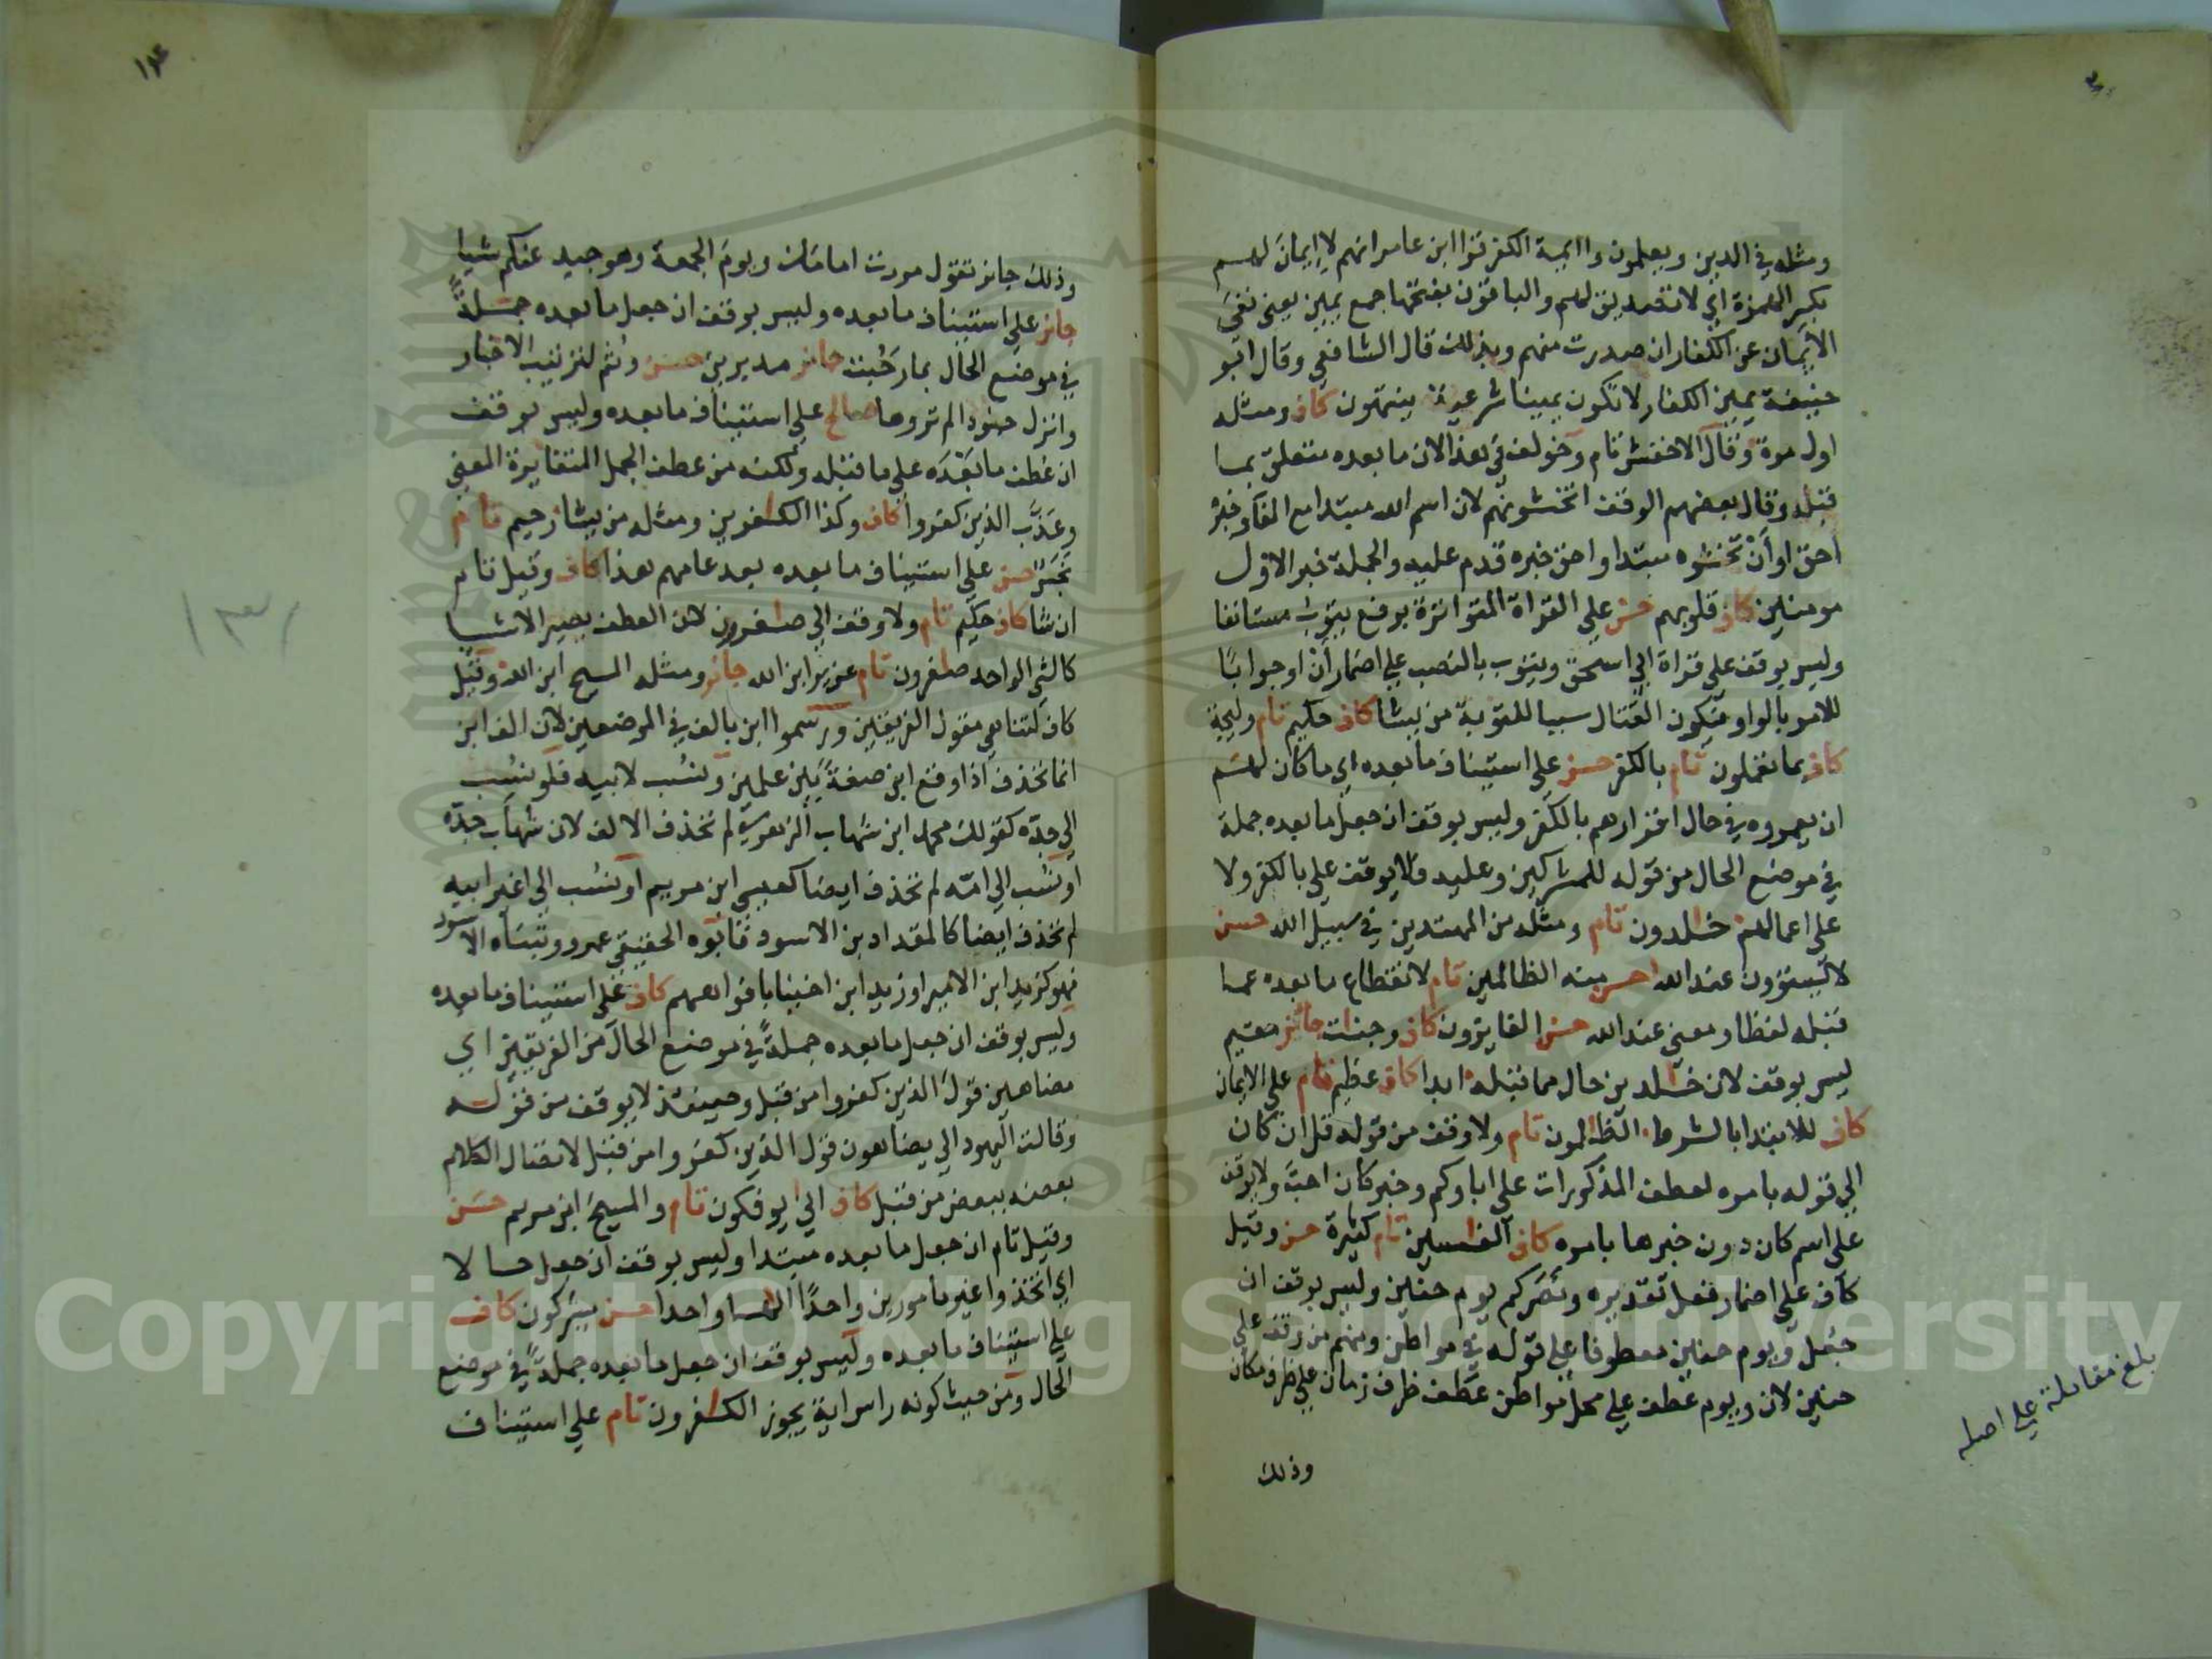 ومثله في الدين ويعلمون واايمة الكفر قرا ابن عامر انهم لا إيمان لهم
بكسر الهمزة اي لا تصديق لهم والباقون بفتحها جمع يمين يعني نفي
الأيمان عن الكفار ان صدرت منهم وبذلك قال الشافعي وقال ابو
حنيفة يمين الكفار لا تكون يمينا شرعية ينتهون كاف ومثله
اول مرة وقال الاخفش تام وخولف في هذا لان ما بعده متعلق بما
قبله وقال بعضهم الوقف اتخشونهم لان اسم الله مبتدا مع الفا وخبره
احق او أن تخشوه مبتدا واحق خبره قدم عليه والجملة خبر الاول
مومنين كاف قلوبهم حسن على القراة المتواترة برفع يتوب مستانفا
وليس بوقف على قراة ابي اسحق ويتوب بالنصب على اضمار أن او جوابا
للامر بالواو فتكون القتال سببا للتوبة من يشا كاف حكيم تام وليجة
كاف بما تعملون تام بالكفر حسن على استيناف ما بعده اي ما كان لهم
ان يعمروه في حال اقرارهم بالكفر وليس بوقف ان جعل ما بعده جملة
في موضع الحال من قوله للمشركين وعليه فلا يوقف على بالكفر ولا
على اعمالهم خلدون تام ومثله من المهتدين في سبيل الله حسن
لا يستوون عند الله احسن منه الظالمين تام لانقطاع ما بعده عما
قبله لفظا ومعنى عند الله حسن الفايزون كاف وجنت جائز مقيم
ليس بوقف لان خلدين حال مما قبله ابدا كاف عظيم تام على الايمان
كاف للابتدا بالشرط الظلمون تام ولا وقف من قوله قل ان كان
الي قوله بامره لعطف المذكورات على اباوكم وخبر كان احب ولا يوقف
على اسم كان دون خبرها بامره كاف الفسقين تام كثيرة حسن وقيل
كاف على اضمار فعل تقديره ونصركم يوم حنين وليس بوقف ان
جعل ويوم حنين معطوفا على قوله في مواطن ومنهم من وقف على
حنين لان ويوم عطف على محل مواطن عطف ظرف زمان على ظرف مكان
وذلك
بلغ مقابلة على اصله
وذلك جايز تقول مررت امامك ويوم الجمعة وهو جيد عنكم شيا
جايز على استيناف ما بعده وليس بوقف ان جعل ما بعده جملة
في موضع الحال بما رحبت جايز مدبرين حسن وثم لترتيب الاخبار
وانزل جنودا لم تروها صالح على استيناف ما بعده وليس بوقف
ان عطف ما بعده على ما قبله ولكنه من عطف الجمل المتغايرة المعنى
وعذب الذين كفروا كاف وكذا الكفرين ومثله من يشا رحيم تام
نجس حسن على استيناف ما بعده بعد عامهم هذا كاف وقيل تام
ان شا كاف حكيم تام ولا وقف الي صغرون لان العطف يصير الاشيا
كالشي الواحد صغرون تام عزير ابن الله جائز ومثله المسيح ابن الله وقيل
كاف لتناهي مقول الفريقين ورسموا ابن بالف في الموضعين لان الف ابن
انما تحذف اذا وقع ابن صفة بين علمين ونسب لابيه فلو نسب
الي جده كقولك محمد ابن شهاب الزهري لم تحذف الالف لان شهاب جده
او نسب الي امه لم تحذف ايضا كعيسى ابن مريم او نسب الي غير ابيه
لم تحذف ايضا كالمقداد بن الاسود فابوه الحقيقي عمرو وتبناه الاسود
فهو كزيد ابن الامير او زيد ابن اخينا بافواههم كاف على استيناف ما بعده
وليس بوقف ان جعل ما بعده جملة في موضع الحال من الفريقين اي
مضاهين قول الذين كفروا من قبل وحينئذ لا يوقف من قوله
وقالت اليهود الي يضاهون قول الذين كفروا من قبل لاتصال الكلام
بعضه ببعض من قبل كاف الي يوفكون تام والمسيح ابن مريم حسن
وقيل تام ان جعل ما بعده مبتدا وليس بوقف ان جعل حالا
اي اتخذوا غير مامورين واحدا الها واحدا حسن يشركون كاف
على استيناف ما بعده وليس بوقف ان جعل ما بعده جملة في موضع
الحال ومن حيث كونه راس اية يجوز الكفرون تام على استيناف
١٣١
Copyright © King Saud University
1957